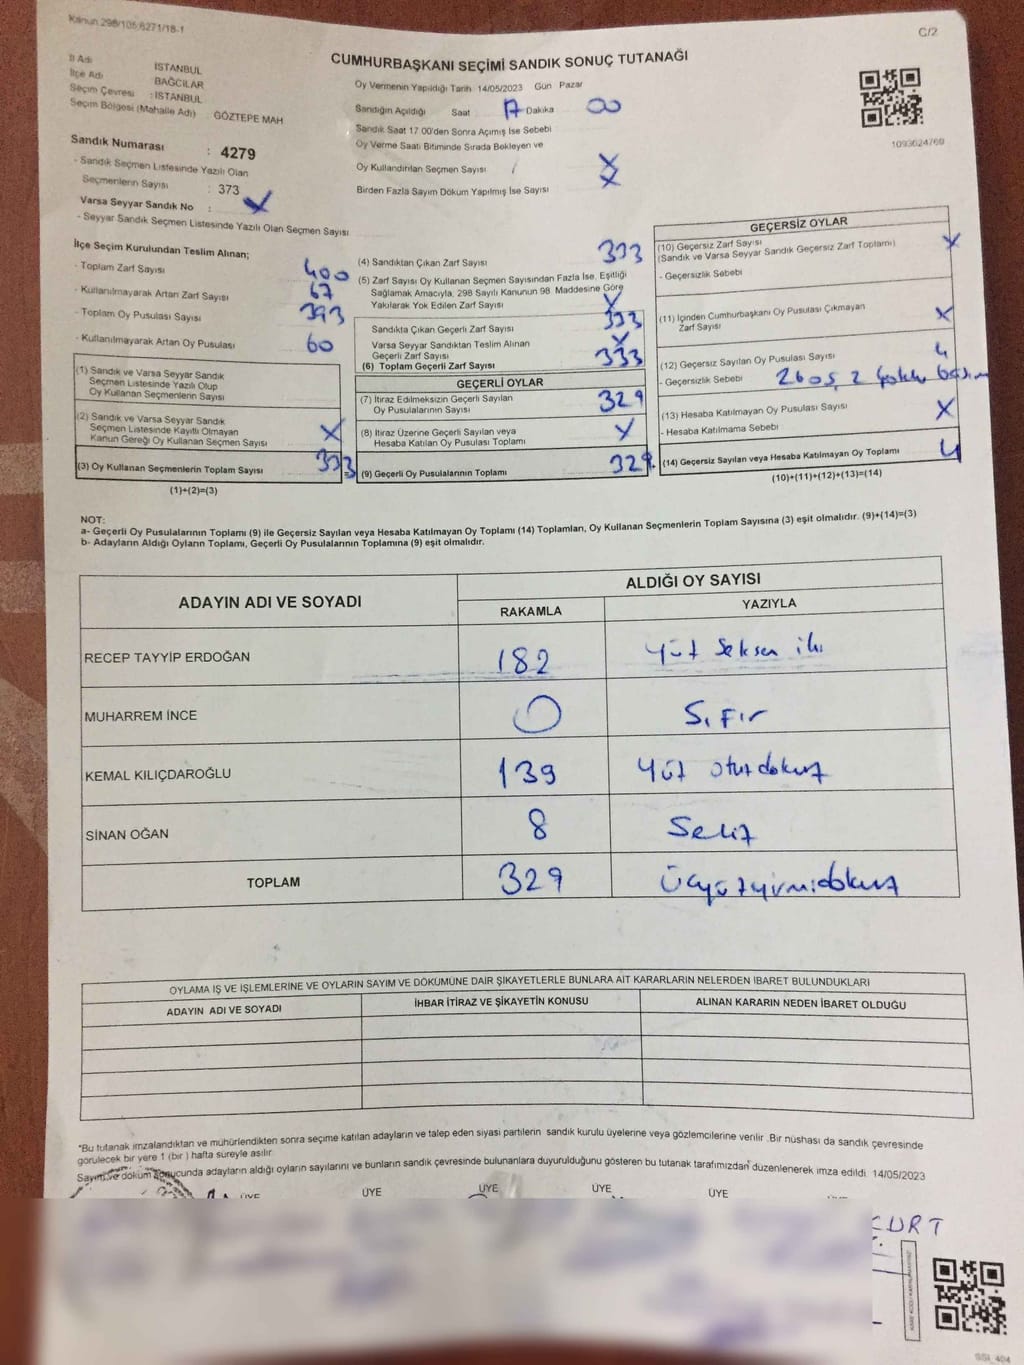 Kanun 298/105;6271/18-1
C/2
CUMHURBAŞKANI SEÇİMİ SANDIK SONUÇ TUTANAĞI
İl Adı İSTANBUL
İlçe Adı BAĞCILAR
Seçim Çevresi : İSTANBUL
Seçim Bölgesi (Mahalle Adı) : GÖZTEPE MAH
Oy Vermenin Yapıldığı Tarih 14/05/2023 Gün Pazar
Sandığın Açıldığı Saat 17 Dakika 00
Sandık Saat 17.00'den Sonra Açılmış İse Sebebi
Oy Verme Saati Bitiminde Sırada Bekleyen ve
Oy Kullandırılan Seçmen Sayısı X
Birden Fazla Sayım Döküm Yapılmış İse Sayısı X
1093624760
Sandık Numarası : 4279
- Sandık Seçmen Listesinde Yazılı Olan
Seçmenlerin Sayısı : 373
Varsa Seyyar Sandık No : X
- Seyyar Sandık Seçmen Listesinde Yazılı Olan Seçmen Sayısı
İlçe Seçim Kurulundan Teslim Alınan;
- Toplam Zarf Sayısı 400
- Kullanılmayarak Artan Zarf Sayısı 67
- Toplam Oy Pusulası Sayısı 393
- Kullanılmayarak Artan Oy Pusulası 60
(1) Sandık ve Varsa Seyyar Sandık
Seçmen Listesinde Yazılı Olup
Oy Kullanan Seçmenlerin Sayısı
(2) Sandık ve Varsa Seyyar Sandık
Seçmen Listesinde Kayıtlı Olmayan
Kanun Gereği Oy Kullanan Seçmen Sayısı X
(3) Oy Kullanan Seçmenlerin Toplam Sayısı 333
(1)+(2)=(3)
(4) Sandıktan Çıkan Zarf Sayısı 333
(5) Zarf Sayısı Oy Kullanan Seçmen Sayısından Fazla İse, Eşitliği
Sağlamak Amacıyla, 298 Sayılı Kanunun 98. Maddesine Göre
Yakılarak Yok Edilen Zarf Sayısı X
Sandıkta Çıkan Geçerli Zarf Sayısı 333
Varsa Seyyar Sandıktan Teslim Alınan
Geçerli Zarf Sayısı X
(6) Toplam Geçerli Zarf Sayısı 333
GEÇERLİ OYLAR
(7) İtiraz Edilmeksizin Geçerli Sayılan
Oy Pusulalarının Sayısı 329
(8) İtiraz Üzerine Geçerli Sayılan veya
Hesaba Katılan Oy Pusulası Toplamı X
(9) Geçerli Oy Pusulalarının Toplamı 329
GEÇERSİZ OYLAR
(10) Geçersiz Zarf Sayısı
(Sandık ve Varsa Seyyar Sandık Geçersiz Zarf Toplamı) X
- Geçersizlik Sebebi
(11) İçinden Cumhurbaşkanı Oy Pusulası Çıkmayan
Zarf Sayısı X
(12) Geçersiz Sayılan Oy Pusulası Sayısı 4
- Geçersizlik Sebebi 2 boş, 2
(13) Hesaba Katılmayan Oy Pusulası Sayısı X
- Hesaba Katılmama Sebebi
(14) Geçersiz Sayılan veya Hesaba Katılmayan Oy Toplamı 4
(10)+(11)+(12)+(13)=(14)
NOT:
a- Geçerli Oy Pusulalarının Toplamı (9) ile Geçersiz Sayılan veya Hesaba Katılmayan Oy Toplamı (14) Toplamları, Oy Kullanan Seçmenlerin Toplam Sayısına (3) eşit olmalıdır. (9)+(14)=(3)
b- Adayların Aldığı Oyların Toplamı, Geçerli Oy Pusulalarının Toplamına (9) eşit olmalıdır.
ADAYIN ADI VE SOYADI ALDIĞI OY SAYISI
RAKAMLA YAZIYLA
RECEP TAYYİP ERDOĞAN 182 Yüz Seksen iki
MUHARREM İNCE 0 Sıfır
KEMAL KILIÇDAROĞLU 139 Yüz otuz dokuz
SİNAN OĞAN 8 Sekiz
TOPLAM 329 Üçyüzyirmidokuz
OYLAMA İŞ VE İŞLEMLERİNE VE OYLARIN SAYIM VE DÖKÜMÜNE DAİR ŞİKAYETLERLE BUNLARA AİT KARARLARIN NELERDEN İBARET BULUNDUKLARI
ADAYIN ADI VE SOYADI İHBAR İTİRAZ VE ŞİKAYETİN KONUSU ALINAN KARARIN NEDEN İBARET OLDUĞU
"Bu tutanak imzalandıktan ve mühürlendikten sonra seçime katılan adayların ve talep eden siyasi partilerin sandık kurulu üyelerine veya gözlemcilerine verilir. Bir nüshası da sandık çevresinde
görülecek bir yere 1 (bir) hafta süreyle asılır.
Sayım ve döküm sonucunda adayların aldığı oyların sayılarını ve bunların sandık çevresinde bulunanlara duyurulduğunu gösteren bu tutanak tarafımızdan düzenlenerek imza edildi. 14/05/2023
ÜYE ÜYE ÜYE ÜYE ÜYE
KURT